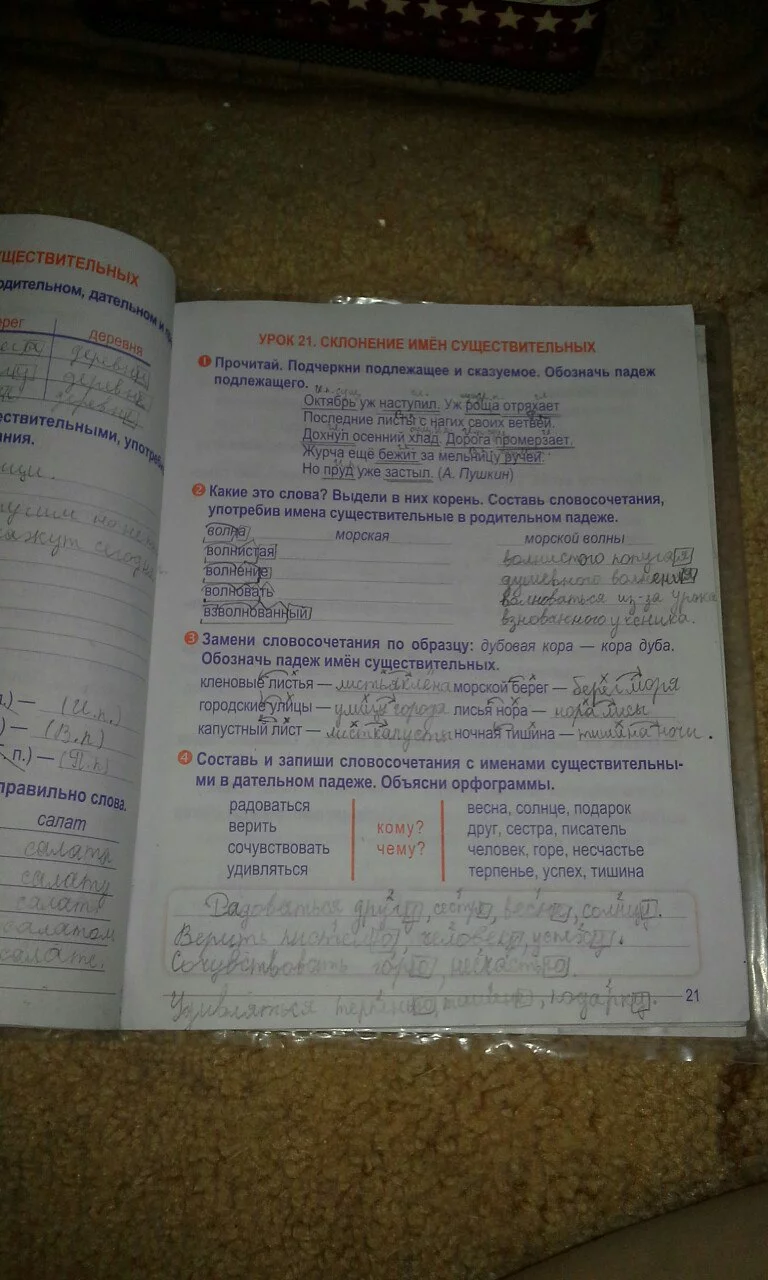 УЩЕСТВИТЕЛЬНЫХ
одительном, дательном и
ерег деревня
деревня
деревне
ествительными, употреб
ания.
п.) — (И.п.)
) — (В.п.)
п.) — (П.п)
правильно слова.
салат
салата
салату
салат
салатом
салате.
УРОК 21. СКЛОНЕНИЕ ИМЁН СУЩЕСТВИТЕЛЬНЫХ
1 Прочитай. Подчеркни подлежащее и сказуемое. Обозначь падеж
подлежащего.
Октябрь уж наступил. Уж роща отряхает
Последние листы с нагих своих ветвей.
Дохнул осенний хлад. Дорога промерзает.
Журча ещё бежит за мельницу ручей.
Но пруд уже застыл. (А. Пушкин)
2 Какие это слова? Выдели в них корень. Составь словосочетания,
употребив имена существительные в родительном падеже.
волна морская морской волны
волнистая волнистого попугая
волнение душевного волнения
волновать волноваться из-за урока
взволнованный взнованного ученика.
3 Замени словосочетания по образцу: дубовая кора — кора дуба.
Обозначь падеж имён существительных.
кленовые листья — листья клёна морской берег — берег моря
городские улицы — улицы города лисья нора — нора лисы
капустный лист — лист капусты ночная тишина — тишина ночи.
4 Составь и запиши словосочетания с именами существительны-
ми в дательном падеже. Объясни орфограммы.
радоваться весна, солнце, подарок
верить кому? друг, сестра, писатель
сочувствовать чему? человек, горе, несчастье
удивляться терпенье, успех, тишина
Радоваться другу, сестре, весне, солнцу.
Верить писателю, человеку, успеху.
Сочувствовать горю, несчастью.
Удивляться терпенью, тишине, подарку.
21